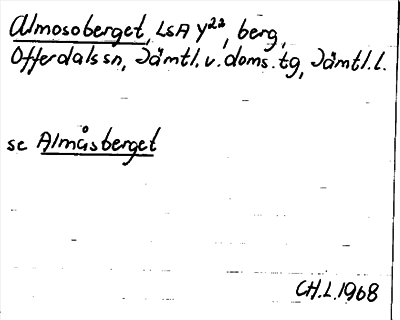 Almosoberget, LsA Y²², berg,
Offerdals sn, Jämtl. v. doms. tg, Jämtl. l.
se Almåsberget
CH.L. 1968